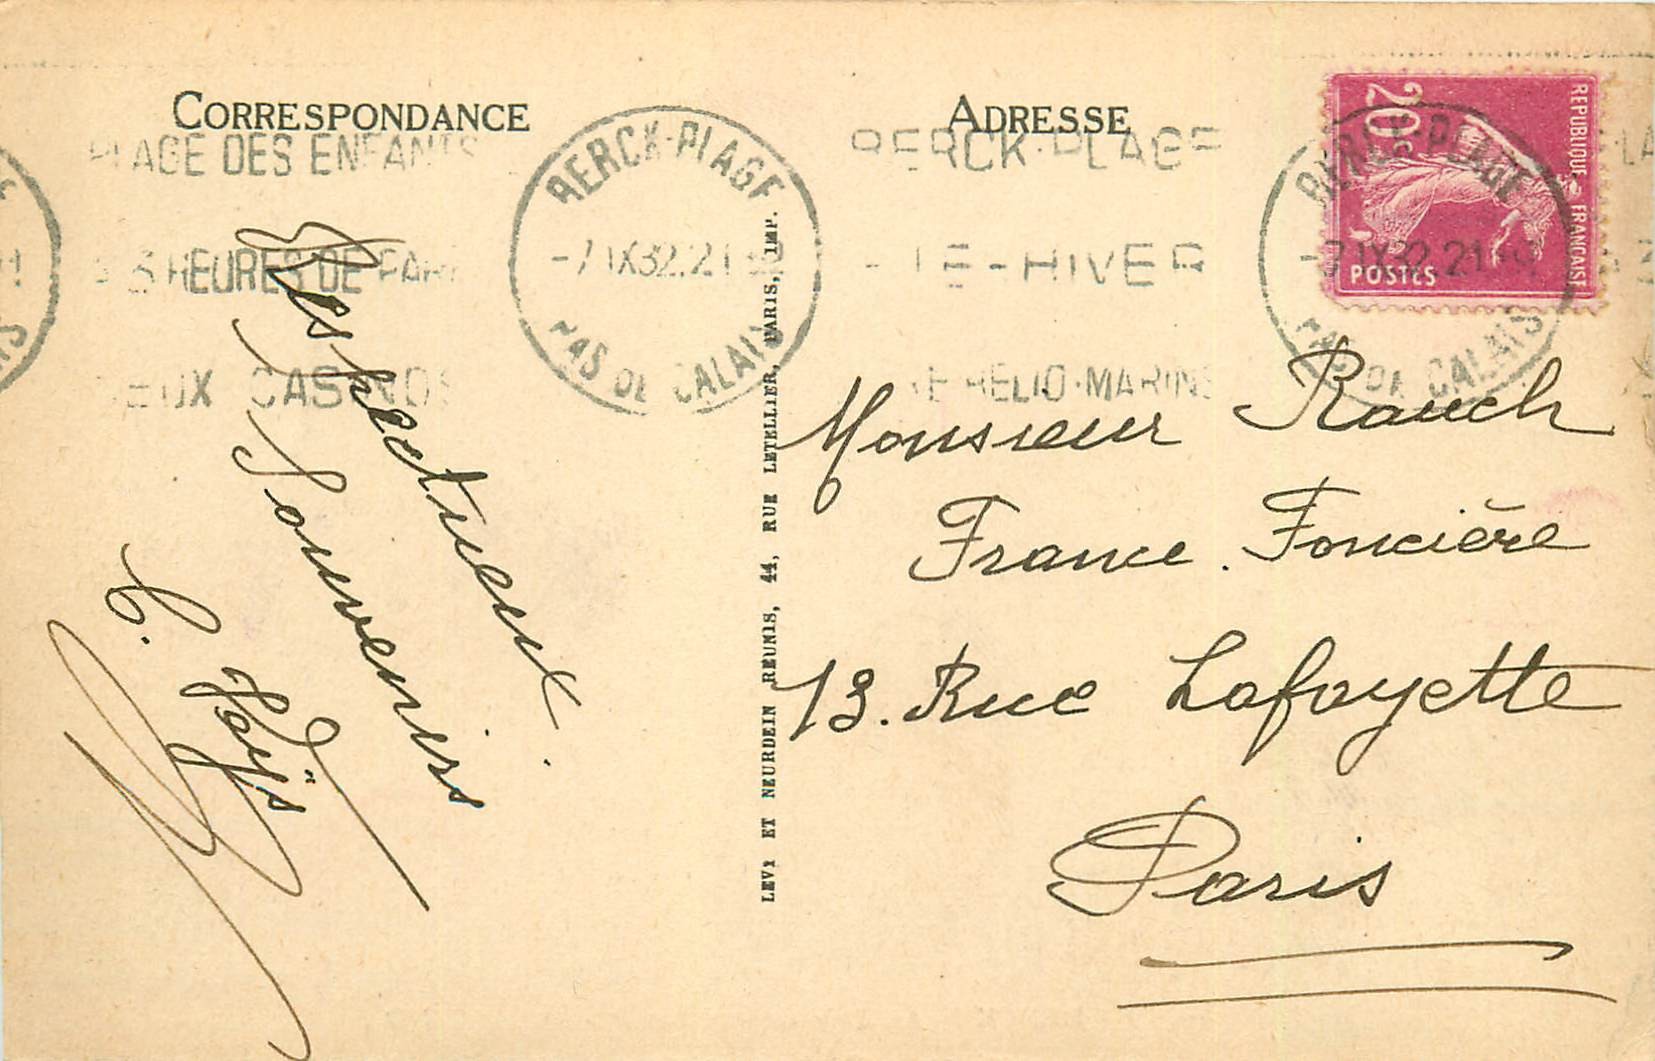 CORRESPONDANCE
ADRESSE
PLAGE DES ENFANTS
3 HEURES DE PARIS
DEUX CASINOS
BERCK-PLAGE
-7 IX 32. 21
PAS DE CALAIS
BERCK-PLAGE
-HIVER
HELIO-MARIN
BERCK-PLAGE
-7 IX 32 21
PAS DE CALAIS
20c
REPUBLIQUE FRANÇAISE
POSTES
Respectueux
Souvenirs
LEVY ET NEURDEIN REUNIS, 44, RUE LETELLIER, PARIS, IMP.
Monsieur Rauch
France. Foncière
13. Rue Lafayette
Paris